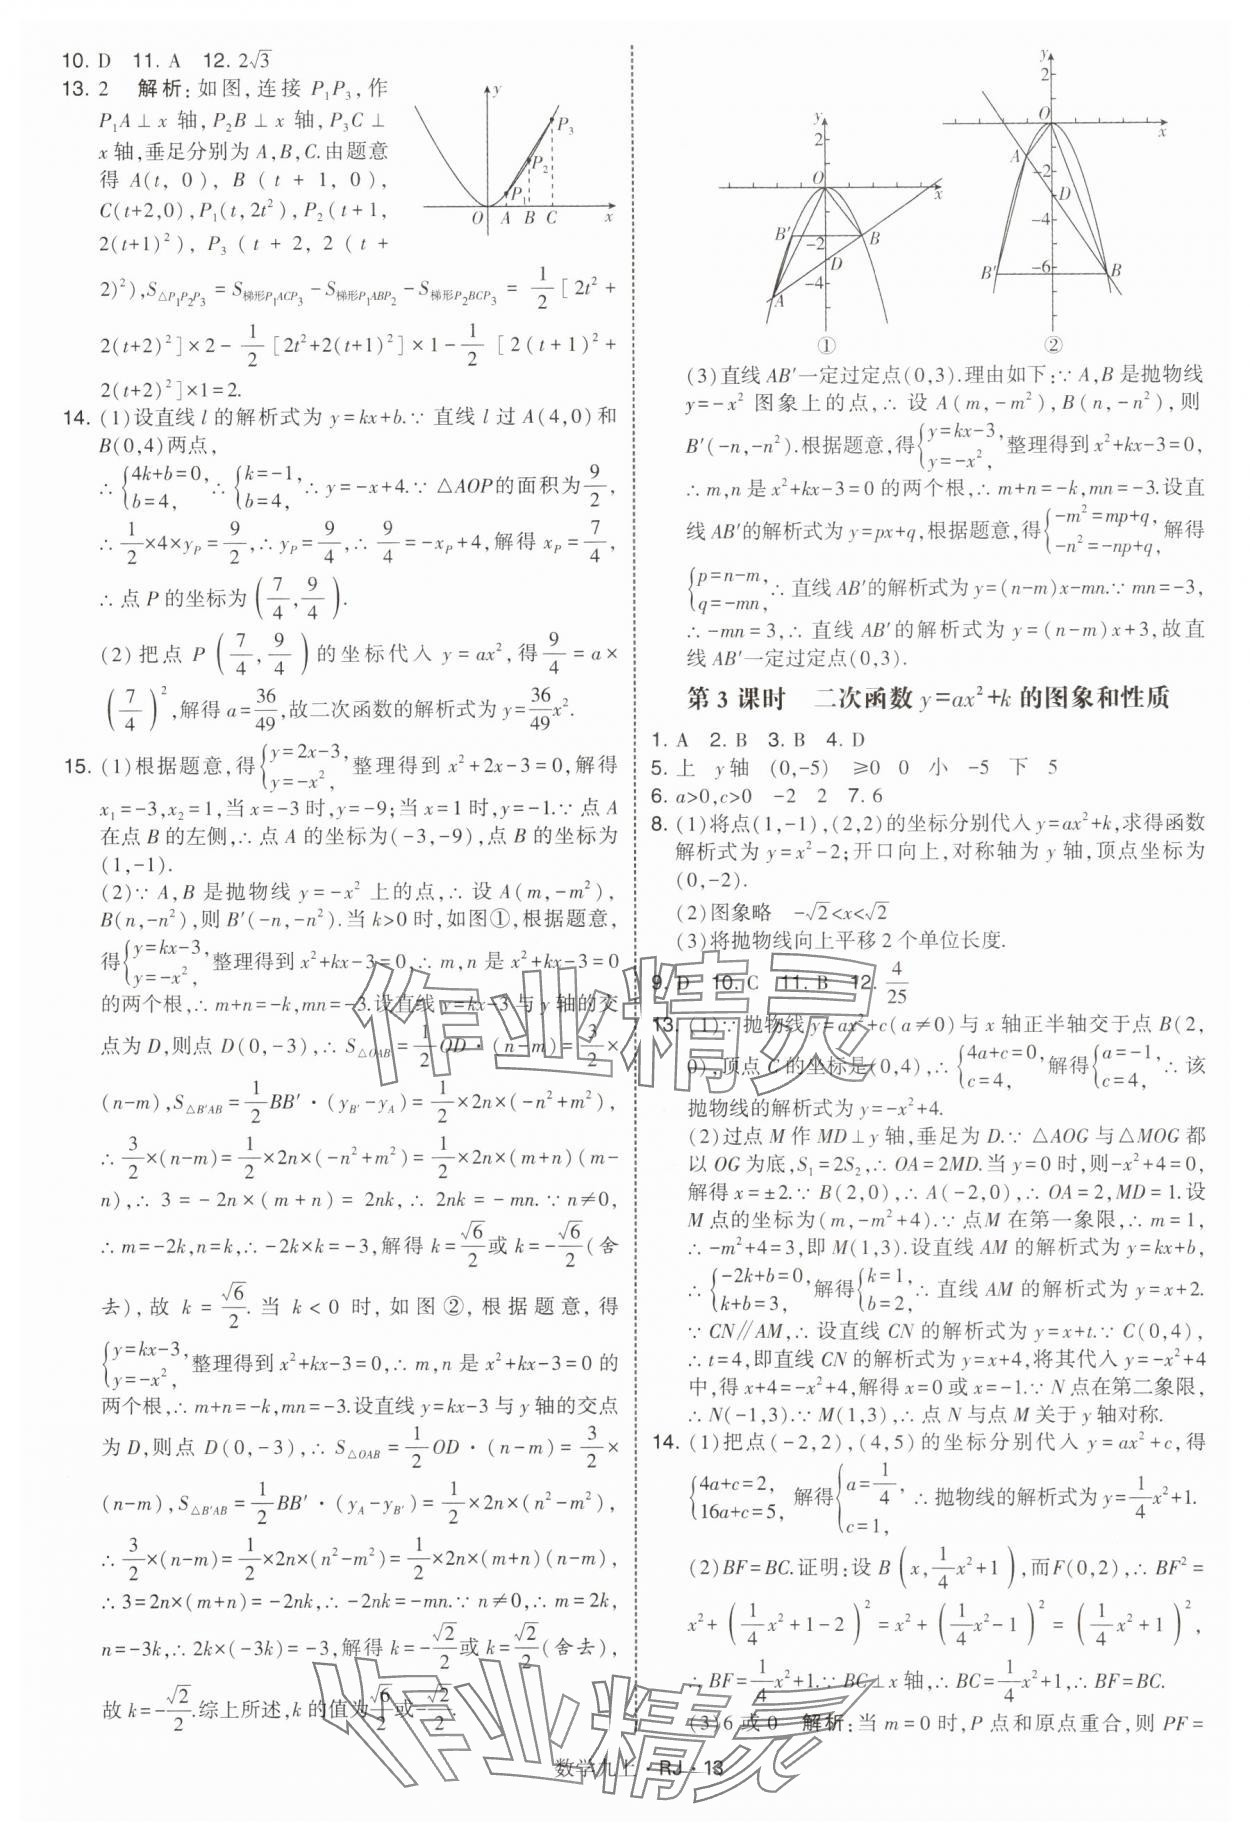 10. D 11. A 12. 2√3
13. 2 解析:如图,连接 P₁P₃,作
P₁A⊥x 轴,P₂B⊥x 轴,P₃C⊥
x 轴,垂足分别为 A,B,C.由题意
得 A(t, 0), B(t+1, 0),
C(t+2,0),P₁(t,2t²),P₂(t+1,
2(t+1)²), P₃(t+2, 2(t+
2)²),S△P₁P₂P₃=S梯形P₁ACP₃-S梯形P₁ABP₂-S梯形P₂BCP₃=1/2[2t²+
2(t+2)²]×2-1/2[2t²+2(t+1)²]×1-1/2[2(t+1)²+
2(t+2)²]×1=2.
y
P₃
P₂
P₁
O A B C x
14. (1)设直线 l 的解析式为 y=kx+b.∵ 直线 l 过 A(4,0)和
B(0,4)两点,
∴{4k+b=0, b=4,∴{k=-1, b=4,∴y=-x+4.∵△AOP的面积为9/2,
∴1/2×4×yP=9/2,∴yP=9/4,∴9/4=-xP+4,解得 xP=7/4,
∴点 P 的坐标为(7/4,9/4).
(2)把点 P(7/4,9/4)的坐标代入 y=ax²,得9/4=a×
(7/4)²,解得 a=36/49,故二次函数的解析式为 y=36/49x².
15. (1)根据题意,得{y=2x-3, y=-x²,整理得到 x²+2x-3=0,解得
x₁=-3,x₂=1,当 x=-3 时,y=-9;当 x=1 时,y=-1.∵ 点 A
在点 B 的左侧,∴点 A 的坐标为(-3,-9),点 B 的坐标为
(1,-1).
(2)∵A,B 是抛物线 y=-x² 上的点,∴设 A(m,-m²),
B(n,-n²),则 B′(-n,-n²).当 k>0 时,如图①,根据题意,
得{y=kx-3, y=-x²,整理得到 x²+kx-3=0,∴m,n 是 x²+kx-3=0
的两个根,∴m+n=-k,mn=-3.设直线 y=kx-3 与 y 轴的交
点为 D,则点 D(0,-3),∴S△OAB=1/2OD·(n-m)=3/2×
(n-m),S△B′AB=1/2BB′·(yB′-yA)=1/2×2n×(-n²+m²),
∴3/2×(n-m)=1/2×2n×(-n²+m²)=1/2×2n×(m+n)(m-
n),∴3=-2n×(m+n)=2nk,∴2nk=-mn.∵n≠0,
∴m=-2k,n=k,∴-2k×k=-3,解得 k=√6/2或 k=-√6/2(舍
去),故 k=√6/2.当 k<0 时,如图②,根据题意,得
{y=kx-3, y=-x²,整理得到 x²+kx-3=0,∴m,n 是 x²+kx-3=0 的
两个根,∴m+n=-k,mn=-3.设直线 y=kx-3 与 y 轴的交点
为 D,则点 D(0,-3),∴S△OAB=1/2OD·(n-m)=3/2×
(n-m),S△B′AB=1/2BB′·(yA-yB′)=1/2×2n×(n²-m²),
∴3/2×(n-m)=1/2×2n×(n²-m²)=1/2×2n×(m+n)(n-m),
∴3=2n×(m+n)=-2nk,∴-2nk=-mn.∵n≠0,∴m=2k,
n=-3k,∴2k×(-3k)=-3,解得 k=-√2/2或 k=√2/2(舍去),
故 k=-√2/2.综上所述,k 的值为√6/2或-√2/2.
y
2
O x
B′ -2 B
D
-4
A
①
y
2
O x
A
-2
D
-4
B′ -6 B
②
(3)直线 AB′一定过定点(0,3).理由如下:∵A,B 是抛物线
y=-x² 图象上的点,∴设 A(m,-m²),B(n,-n²),则
B′(-n,-n²).根据题意,得{y=kx-3, y=-x²,整理得到 x²+kx-3=0,
∴m,n 是 x²+kx-3=0 的两个根,∴m+n=-k,mn=-3.设直
线 AB′的解析式为 y=px+q,根据题意,得{-m²=mp+q, -n²=-np+q,解得
{p=n-m, q=-mn,∴直线 AB′的解析式为 y=(n-m)x-mn.∵mn=-3,
∴-mn=3,∴直线 AB′的解析式为 y=(n-m)x+3,故直
线 AB′一定过定点(0,3).
第 3 课时 二次函数 y=ax²+k 的图象和性质
1. A 2. B 3. B 4. D
5. 上 y轴 (0,-5) ≥0 0 小 -5 下 5
6. a>0,c>0 -2 2 7. 6
8. (1)将点(1,-1),(2,2)的坐标分别代入 y=ax²+k,求得函数
解析式为 y=x²-2;开口向上,对称轴为 y 轴,顶点坐标为
(0,-2).
(2)图象略 -√2<x<√2
(3)将抛物线向上平移 2 个单位长度.
9. D 10. C 11. B 12. 4/25
13. (1)∵抛物线 y=ax²+c(a≠0)与 x 轴正半轴交于点 B(2,
0),顶点 C 的坐标是(0,4),∴{4a+c=0, c=4,解得{a=-1, c=4,∴该
抛物线的解析式为 y=-x²+4.
(2)过点 M 作 MD⊥y 轴,垂足为 D.∵△AOG 与△MOG 都
以 OG 为底,S₁=2S₂,∴OA=2MD.当 y=0 时,则-x²+4=0,
解得 x=±2.∵B(2,0),∴A(-2,0),∴OA=2,MD=1.设
M 点的坐标为(m,-m²+4).∵点M 在第一象限,∴m=1,
∴-m²+4=3,即 M(1,3).设直线 AM 的解析式为 y=kx+b,
∴{-2k+b=0, k+b=3,解得{k=1, b=2,∴直线 AM 的解析式为 y=x+2.
∵CN∥AM,∴设直线 CN 的解析式为 y=x+t.∵C(0,4),
∴t=4,即直线 CN 的解析式为 y=x+4,将其代入 y=-x²+4
中,得 x+4=-x²+4,解得 x=0 或 x=-1.∵N 点在第二象限,
∴N(-1,3).∵M(1,3),∴点 N 与点 M 关于 y 轴对称.
14. (1)把点(-2,2),(4,5)的坐标分别代入 y=ax²+c,得
{4a+c=2, 16a+c=5,解得{a=1/4, c=1,∴抛物线的解析式为 y=1/4x²+1.
(2)BF=BC.证明:设 B(x,1/4x²+1),而F(0,2),∴BF²=
x²+(1/4x²+1-2)²=x²+(1/4x²-1)²=(1/4x²+1)²,
∴BF=1/4x²+1.∵BC⊥x 轴,∴BC=1/4x²+1,∴BF=BC.
(3)6 或 0 解析:当 m=0 时,P 点和原点重合,则 PF=
数学九上·RJ-13
作业精灵
作业精灵